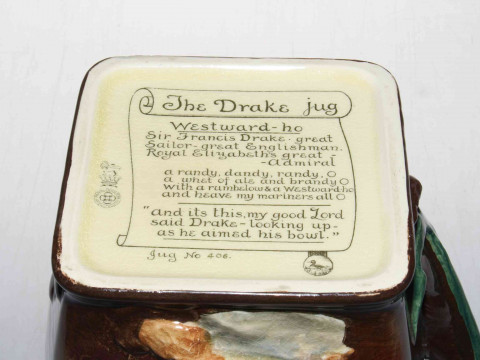 The Drake jug
Westward-ho
Sir Francis Drake-great
Sailor-great Englishman.
Royal Elizabeth's great-
-Admiral
a randy, dandy, randy, O
a whet of ale and brandy O
With a rumbelow & a Westward-ho
and heave my mariners all O
"and its this, my good Lord
said Drake-looking up-
as he aimed his bowl."
Jug No 406.